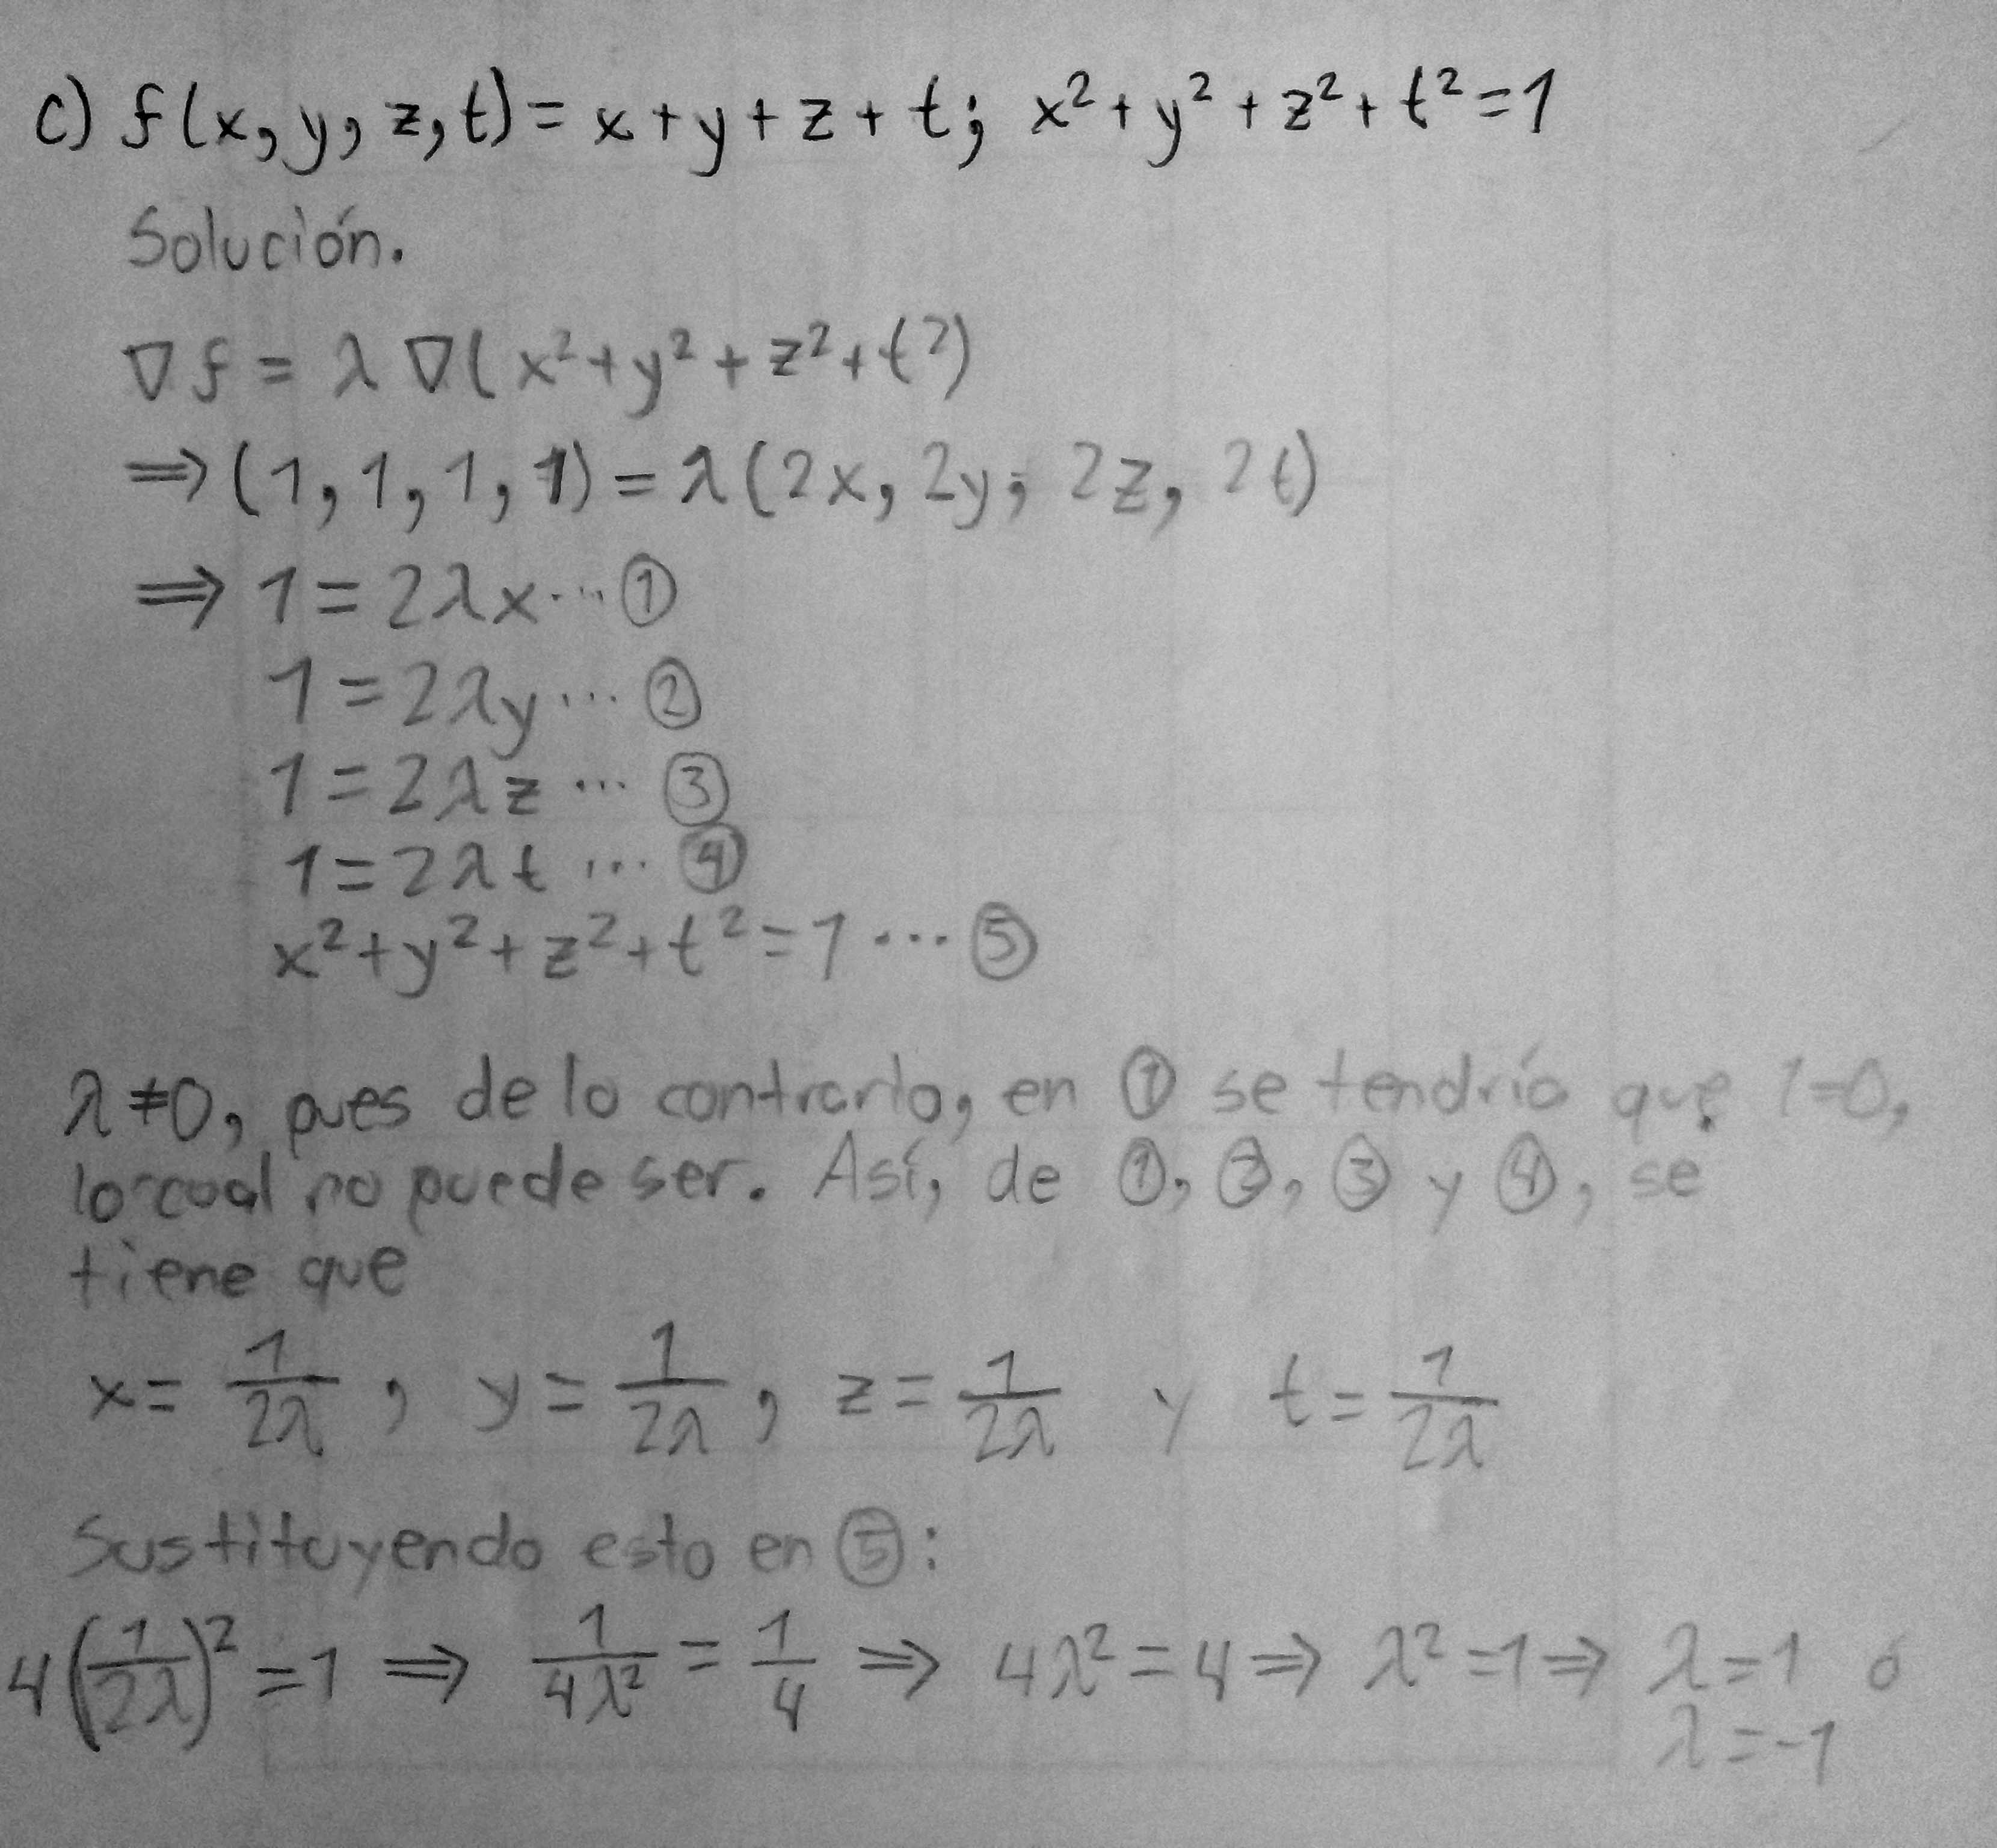 c) f(x, y, z, t) = x + y + z + t; x² + y² + z² + t² = 1
Solución.
∇f = λ ∇(x² + y² + z² + t²)
⇒ (1, 1, 1, 1) = λ(2x, 2y, 2z, 2t)
⇒ 1 = 2λx ... ①
1 = 2λy ... ②
1 = 2λz ... ③
1 = 2λt ... ④
x² + y² + z² + t² = 1 ... ⑤
λ ≠ 0, pues de lo contrario, en ① se tendría que 1=0,
lo cual no puede ser. Así, de ①, ②, ③ y ④, se
tiene que
x = 1/2λ , y = 1/2λ , z = 1/2λ y t = 1/2λ
Sustituyendo esto en ⑤:
4(1/2λ)² = 1 ⇒ 1/4λ² = 1/4 ⇒ 4λ² = 4 ⇒ λ² = 1 ⇒ λ = 1 ó
λ = -1